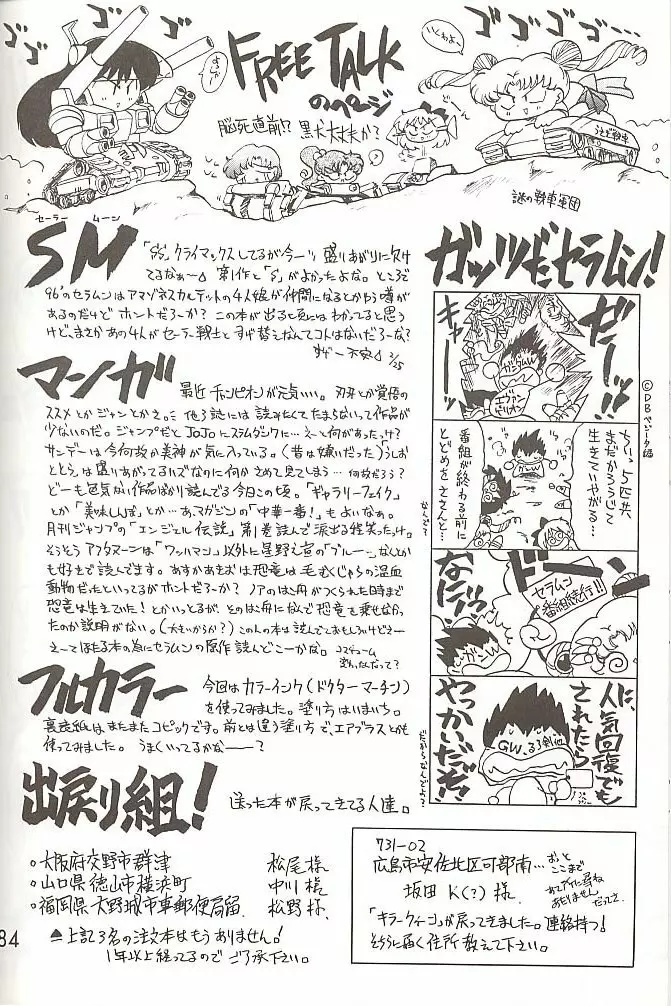 FREE TALK
のページ
脳死直前!? 黒犬大丈夫か?
ゴゴゴ
ゴゴゴゴ
いくわよー
謎の戦車軍団
セーラー ムーン
SM
「SS」クライマックスしてるが今一ツ盛りあがりに欠け
てるなぁ〜 第1作と「S」がよかったよな。ところで
96'のセラムンはアマゾネスカルテットの4人娘が仲間になるとかゆう噂が
あるのだけどホントだろーか? この本が出る頃にはわかってると思う
けど、まさかあの4人がセーラー戦士とすげ替えなんてコトはないだろーな?
不安 2/25
マンガ
最近チャンピオンが元気いい。刃牙とか覚悟の
ススメとかジャンとかさ。 他3誌には読みたくてたまらないって作品が
少ないのだ。ジャンプだとJoJoにスラムダンクに…えーと何があったっけ?
サンデーは今何故か美神が気に入っている。(昔は嫌いだった)うしお
ととらは盛りあがってるハズなのに何かさめて見てしまう… 何故だろう?
どーも色気ない作品ばかり読んでる今日この頃。「ギャラリーフェイク」
とか「美味しんぼ」とか…あ、マガジンの「中華一番!」もよいなぁ。
月刊ジャンプの「エンジェル伝説」第1巻読んで涙出る程笑ったっけ。
そうそうアフタヌーンは「ワッハマン」以外に星野之宣の「ブルー〜」なんとか
も好きで読んでます。あすかあきおは恐竜は毛むくじゃらの温血
動物だったといってるがホントだろーか? ノアのはこ舟がつくられた時まで
恐竜は生きていた!とかいっとるが、そのはこ舟になんで恐竜を乗せなかっ
たのか説明がない。(大きいからか?)この人の本は読んでておもしろいけどさー
え〜て次でる本の為にセラムンの原作読んどこーかな。
フルカラー
今回はカラーインク(ドクターマーチン)
を使ってみました。塗り方はいまいち。
裏表紙はまたまたコピックです。前とは違う塗り方で、エアブラスとかも
使ってみました。 うまくいってるかな———?
出戻り組!
送った本が戻ってきてる人達。
○大阪府交野市群津 松尾様
○山口県徳山市桜浜町 中川様
○福岡県大野城市車郵便局留 松野様
▲上記3名の注文本はもうありません!
1年以上経ってるのでご了承下さい。
731-02
広島市安佐北区可部南…
おっと
ここまで
坂田 K(?)様
「キラークィーン」が戻ってきました。連絡待つ!
そちらに届く住所教えて下さい。
ガッツだセラムン!
©DBベジータ編
ゼーッ!!
キャー
ガンダムW
エヴァンゲリオン
ちいっ、5匹共
まだかろうじて
生きていやがる…
番組が終わる前に
とどめをささんと…
なんで?
ドーン
セラムン
番組続行!!
なにィ!
人気回復でも
されたら
やっかいだぞ!
GW、るろ剣他
だからなんでよ?
84